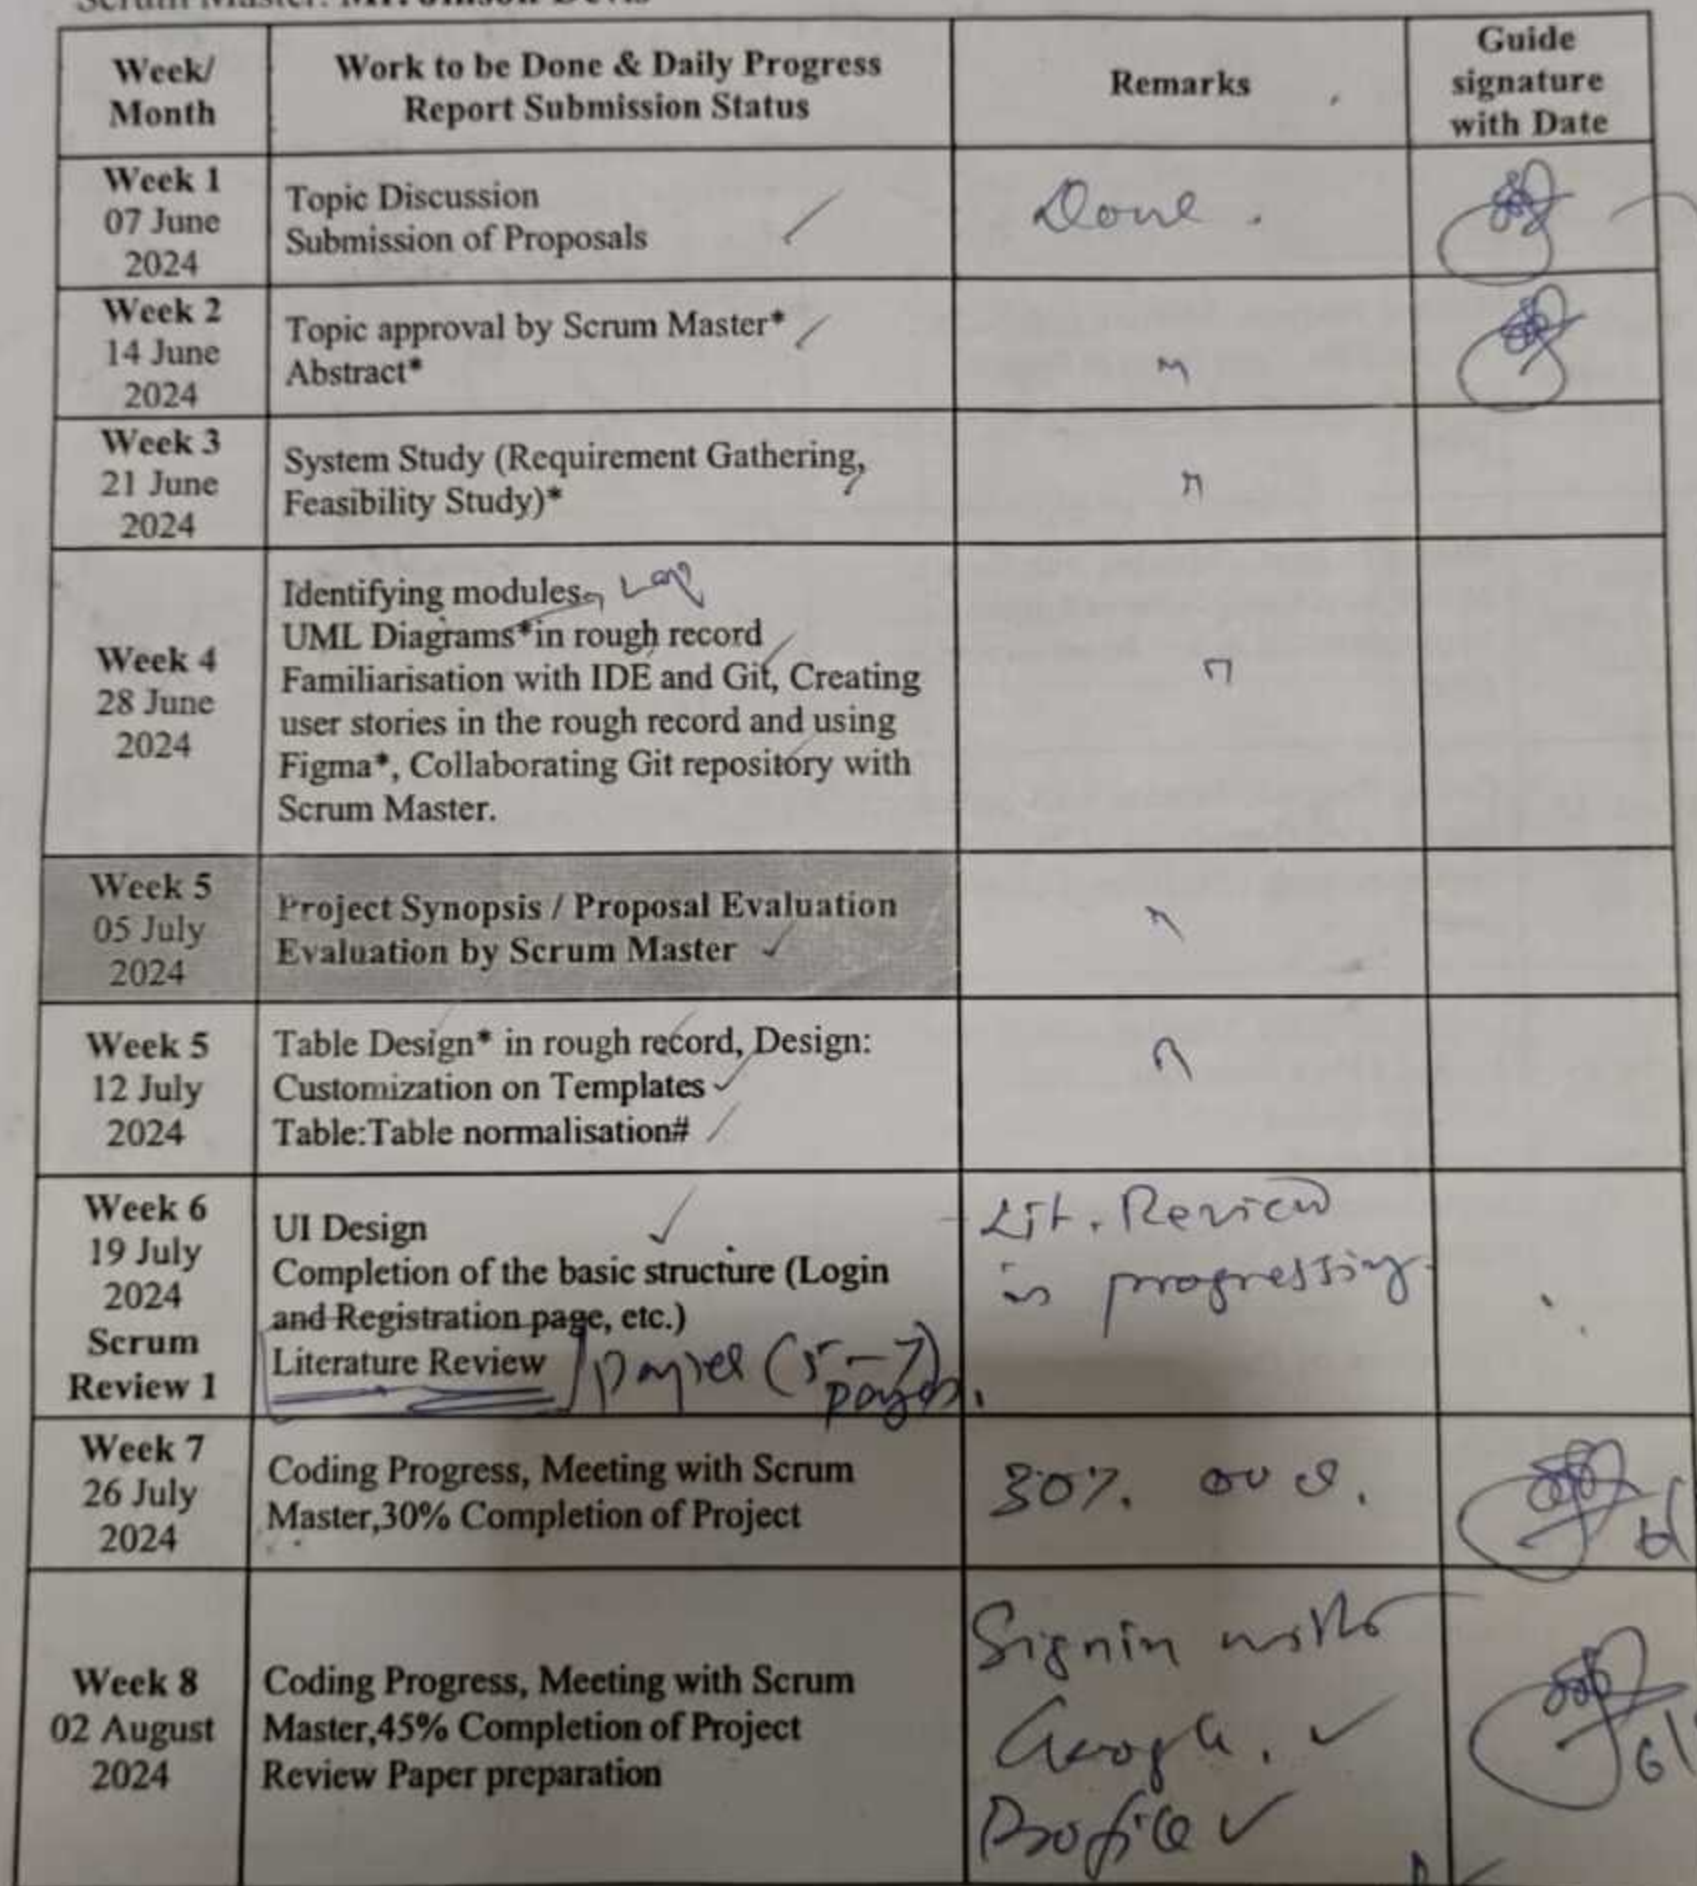 Week/
Month
Work to be Done & Daily Progress
Report Submission Status
Remarks
Guide
signature
with Date
Week 1
07 June
2024
Topic Discussion
Submission of Proposals
Done.
Week 2
14 June
2024
Topic approval by Scrum Master*
Abstract*
Week 3
21 June
2024
System Study (Requirement Gathering,
Feasibility Study)*
Week 4
28 June
2024
Identifying modules
UML Diagrams*in rough record
Familiarisation with IDE and Git, Creating
user stories in the rough record and using
Figma*, Collaborating Git repository with
Scrum Master.
Week 5
05 July
2024
Project Synopsis / Proposal Evaluation
Evaluation by Scrum Master
Week 5
12 July
2024
Table Design* in rough record, Design:
Customization on Templates
Table:Table normalisation#
Week 6
19 July
2024
Scrum
Review 1
UI Design
Completion of the basic structure (Login
and Registration page, etc.)
Literature Review paper (5-7)
pages.
Lit. Review
is progressing
Week 7
26 July
2024
Coding Progress, Meeting with Scrum
Master,30% Completion of Project
30%.
Week 8
02 August
2024
Coding Progress, Meeting with Scrum
Master,45% Completion of Project
Review Paper preparation
Signin with
Google. ✓
Profile ✓